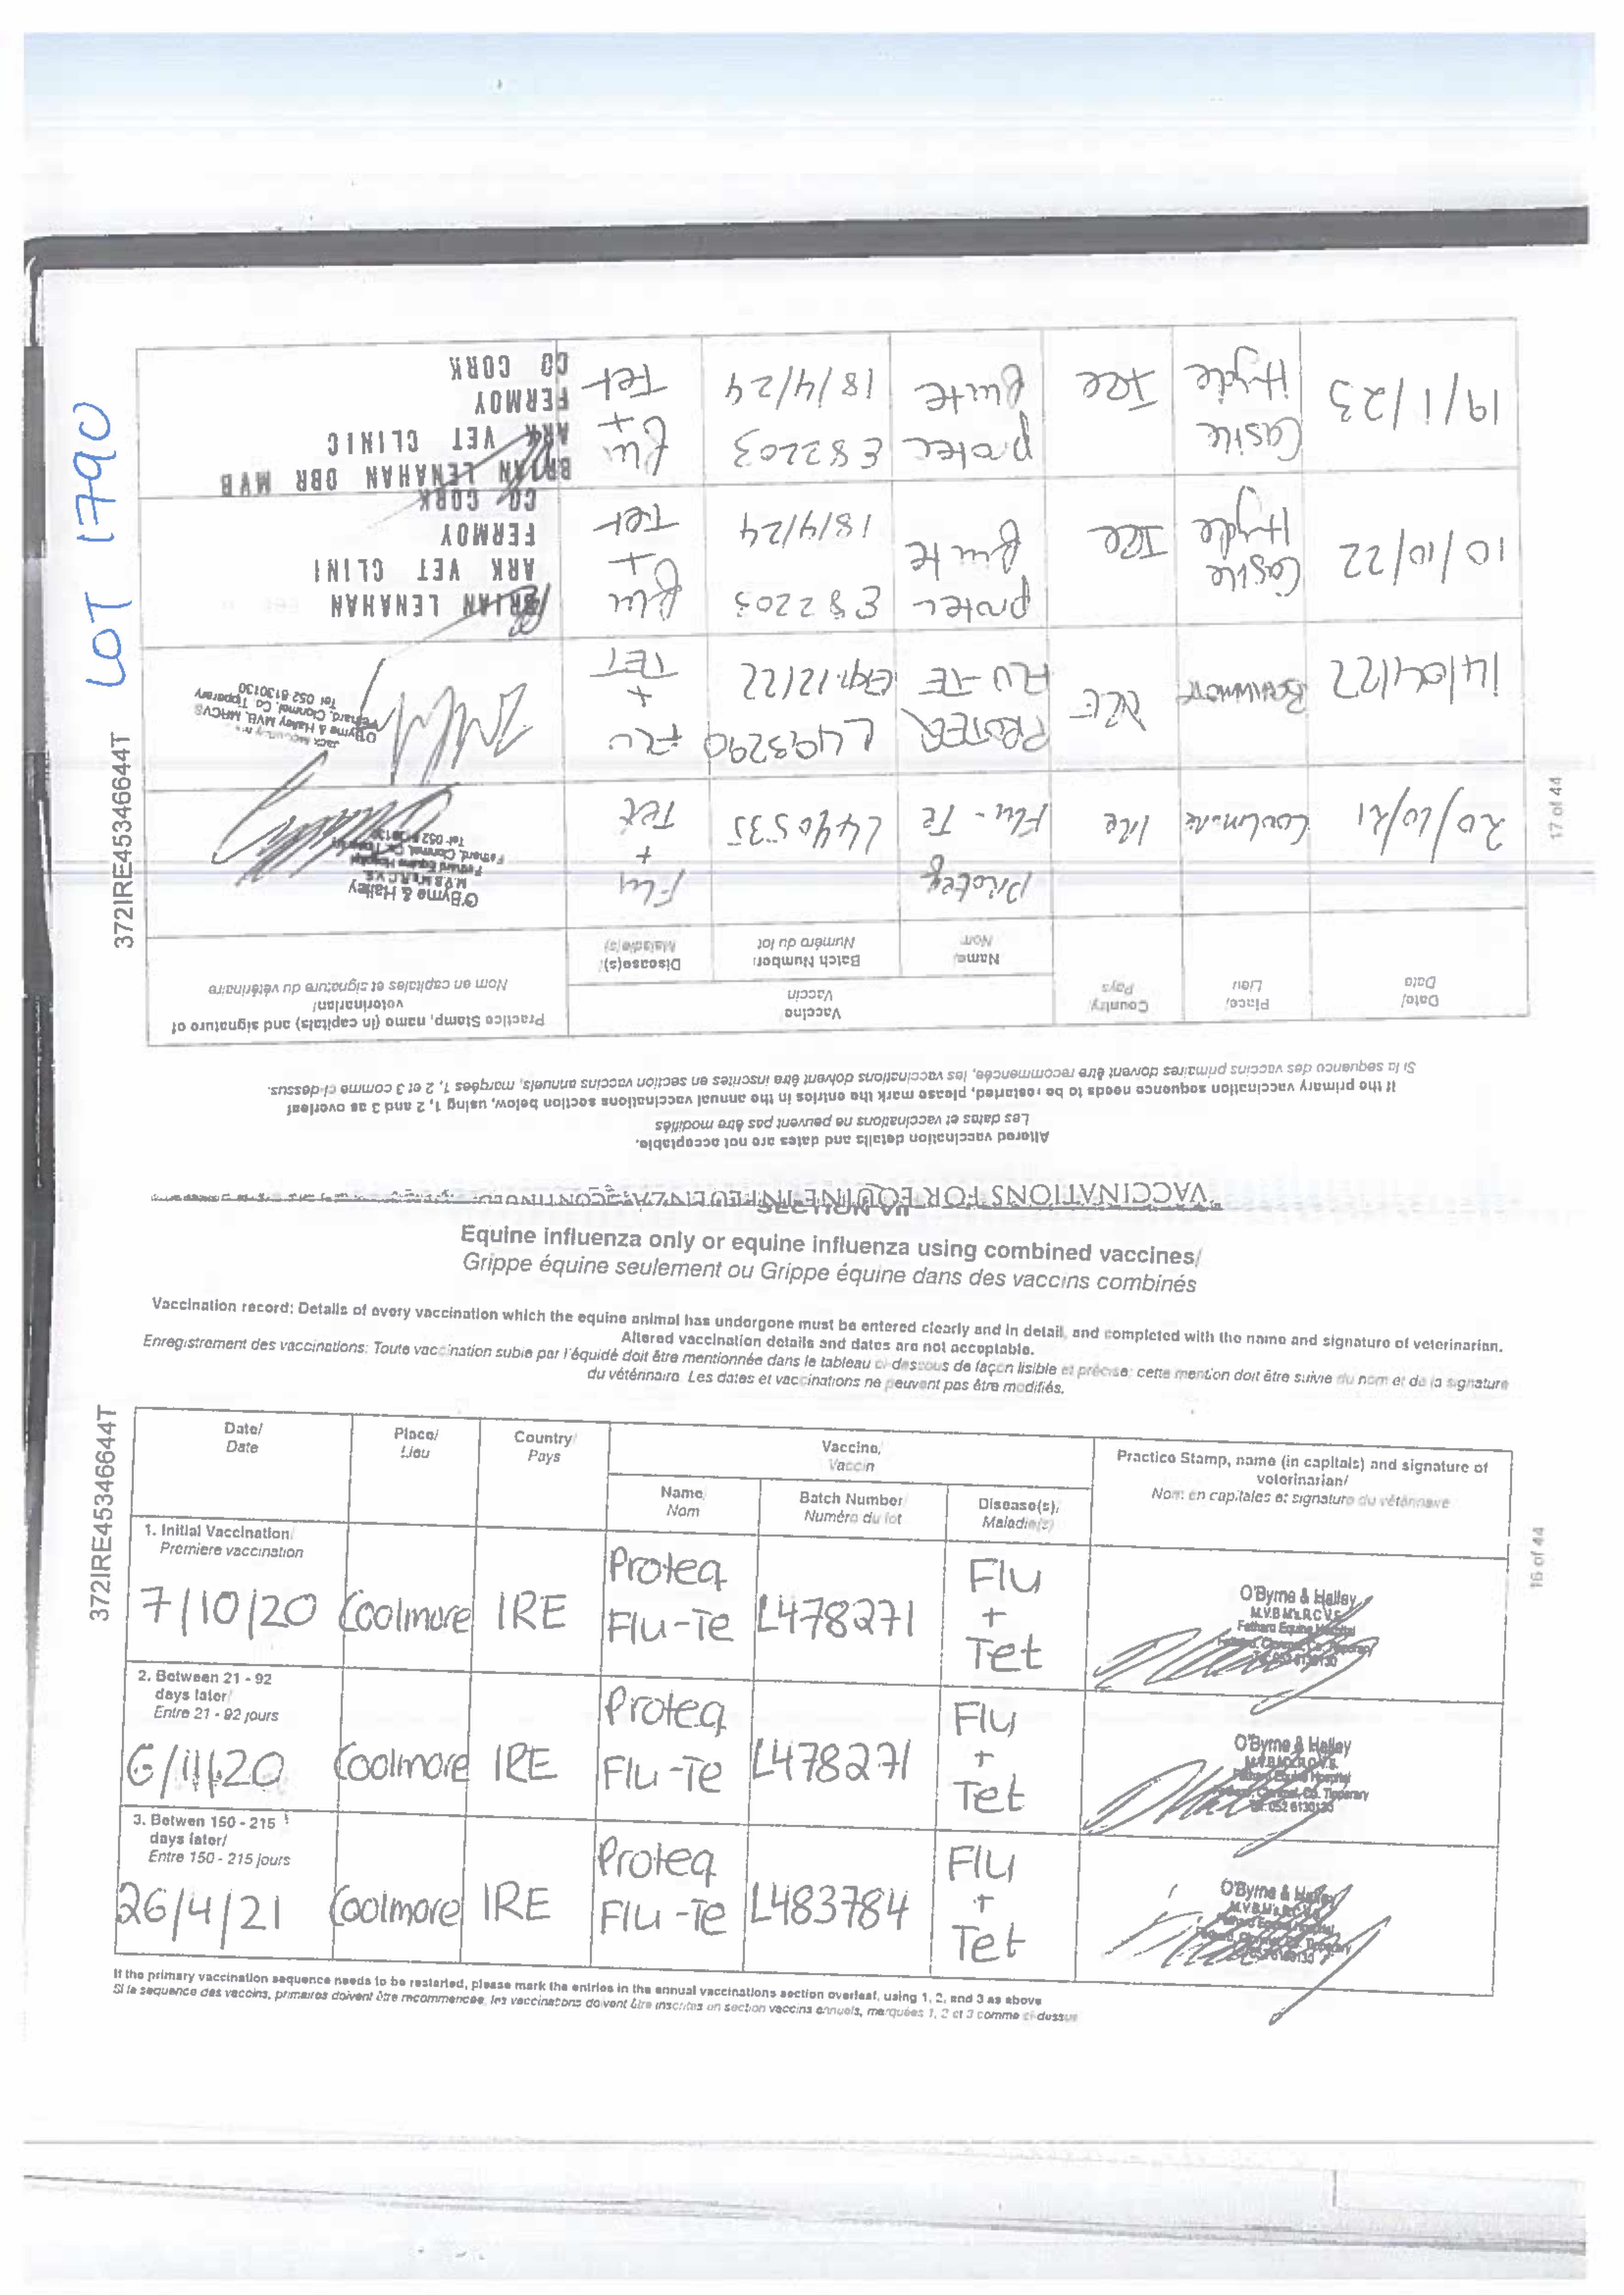 LOT 1790
372IRE45346644T
17 of 44
VACCINATIONS FOR EQUINE INFLUENZA
Altered vaccination details and dates are not acceptable.
Les dates et vaccinations ne peuvent pas être modifiés
If the primary vaccination sequence needs to be restarted, please mark the entries in the annual vaccinations section below, using 1, 2 and 3 as overleaf
Si la sequence des vaccins primaires doivent être recommencée, les vaccinations doivent être inscrites en section vaccins annuels, marqées 1, 2 et 3 comme ci-dessus.
Date/ Place/ Country/ Vaccine Practice Stamp, name (in capitals) and signature of
Date Lieu Pays Vaccin veterinarian/
Name/ Batch Number/ Disease(s)/ Nom en capitales et signature du vétérinaire
Nom Numéro du lot Maladie(s)
20/10/21 Coolmore IRe Proteq Flu - Te L490535 Flu + Tet
O'Byrne & Halley
M.V.B M's R.C.V.S.
Fethard Equine Hospital
Fethard, Clonmel, Co. Tipperary
Tel: 052 6130130
14/04/22 IRE PROTEQ FLU-TE L493290 Exp. 12/22 FLU + TET
O'Byrne & Halley MVB, MRCVS
Fethard, Clonmel, Co. Tipperary
Tel 052 6130130
10/10/22 Castle Hyde Ire protec flu te E82203 18/4/24 flu + Tet
BRIAN LENAHAN
ARK VET CLINI
FERMOY
CO CORK
19/1/23 Castle Hyde Ire protec flu te E82203 18/4/24 flu + Tet
BRIAN LENAHAN DBR MVB
ARK VET CLINIC
FERMOY
CO CORK
SECTION VII
Equine influenza only or equine influenza using combined vaccines/
Grippe équine seulement ou Grippe équine dans des vaccins combinés
Vaccination record: Details of every vaccination which the equine animal has undergone must be entered clearly and in detail, and completed with the name and signature of veterinarian.
Altered vaccination details and dates are not acceptable.
Enregistrement des vaccinations: Toute vaccination subie par l'équidé doit être mentionnée dans le tableau ci-dessous de façon lisible et précise; cette mention doit être suivie du nom et de la signature
du vétérinaire. Les dates et vaccinations ne peuvent pas être modifiés.
372IRE45346644T
16 of 44
Date/ Place/ Country/ Vaccine/ Practice Stamp, name (in capitals) and signature of
Date Lieu Pays Vaccin veterinarian/
Name/ Batch Number/ Disease(s)/ Nom en capitales et signature du vétérinaire
Nom Numéro du lot Maladie(s)
1. Initial Vaccination/
Premiere vaccination
7/10/20 Coolmore IRE Proteq Flu-Te L478271 Flu + Tet
O'Byrne & Halley
M.V.B M's R.C.V.S.
Fethard Equine Hospital
Fethard, Clonmel, Co. Tipperary
Tel: 052 6130130
2. Between 21 - 92
days later/
Entre 21 - 92 jours
6/11/20 Coolmore IRE Proteq Flu-Te L478271 Flu + Tet
O'Byrne & Halley
M.V.B M's R.C.V.S.
Fethard Equine Hospital
Fethard, Clonmel, Co. Tipperary
Tel: 052 6130130
3. Betwen 150 - 215
days later/
Entre 150 - 215 jours
26/4/21 Coolmore IRE Proteq Flu-Te L483784 Flu + Tet
O'Byrne & Halley
M.V.B M's R.C.V.S.
Fethard Equine Hospital
Fethard, Clonmel, Co. Tipperary
Tel: 052 6130130
If the primary vaccination sequence needs to be restarted, please mark the entries in the annual vaccinations section overleaf, using 1, 2, and 3 as above
Si la sequence des vaccins, primaires doivent être recommencée, les vaccinatons doivent être inscrites en section vaccins annuels, marquées 1, 2 et 3 comme ci-dessus